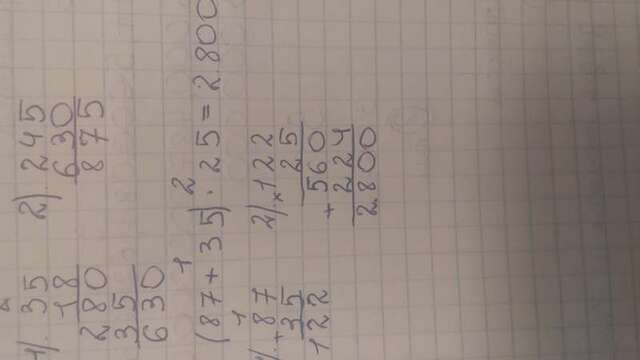 1). 35
18
280
35
630
2) 245
630
875
1 2
(87+35) . 25 = 2.800
1
1). 87
+ 35
122
2). 122
× 25
560
+ 224
2.800